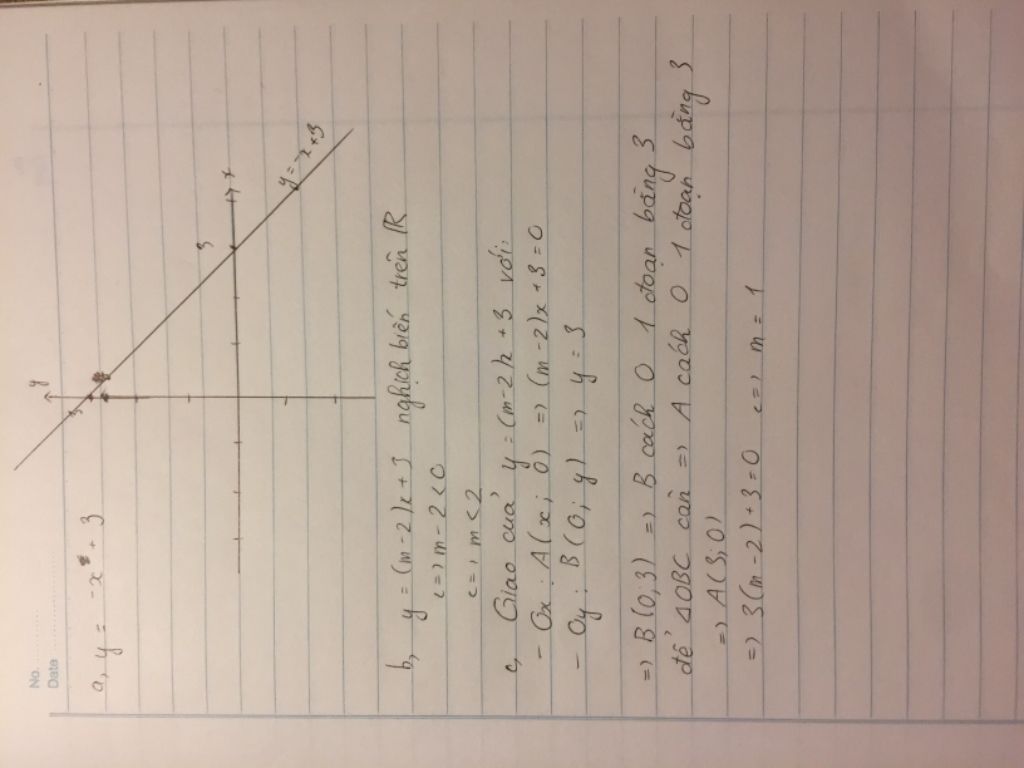 No.
Data
a, y = -x + 3
y
3
3
x
y = -x+3
b, y = (m-2)x + 3 nghịch biến trên R
<=> m - 2 < 0
<=> m < 2
c, Giao của y = (m-2)x + 3 với:
- Ox : A(x; 0) => (m-2)x + 3 = 0
- Oy : B(0; y) => y = 3
=> B(0,3) => B cách O 1 đoạn bằng 3
để ΔOBC cân => A cách O 1 đoạn bằng 3
=> A(3;0)
=> 3(m-2)+3=0 <=> m = 1